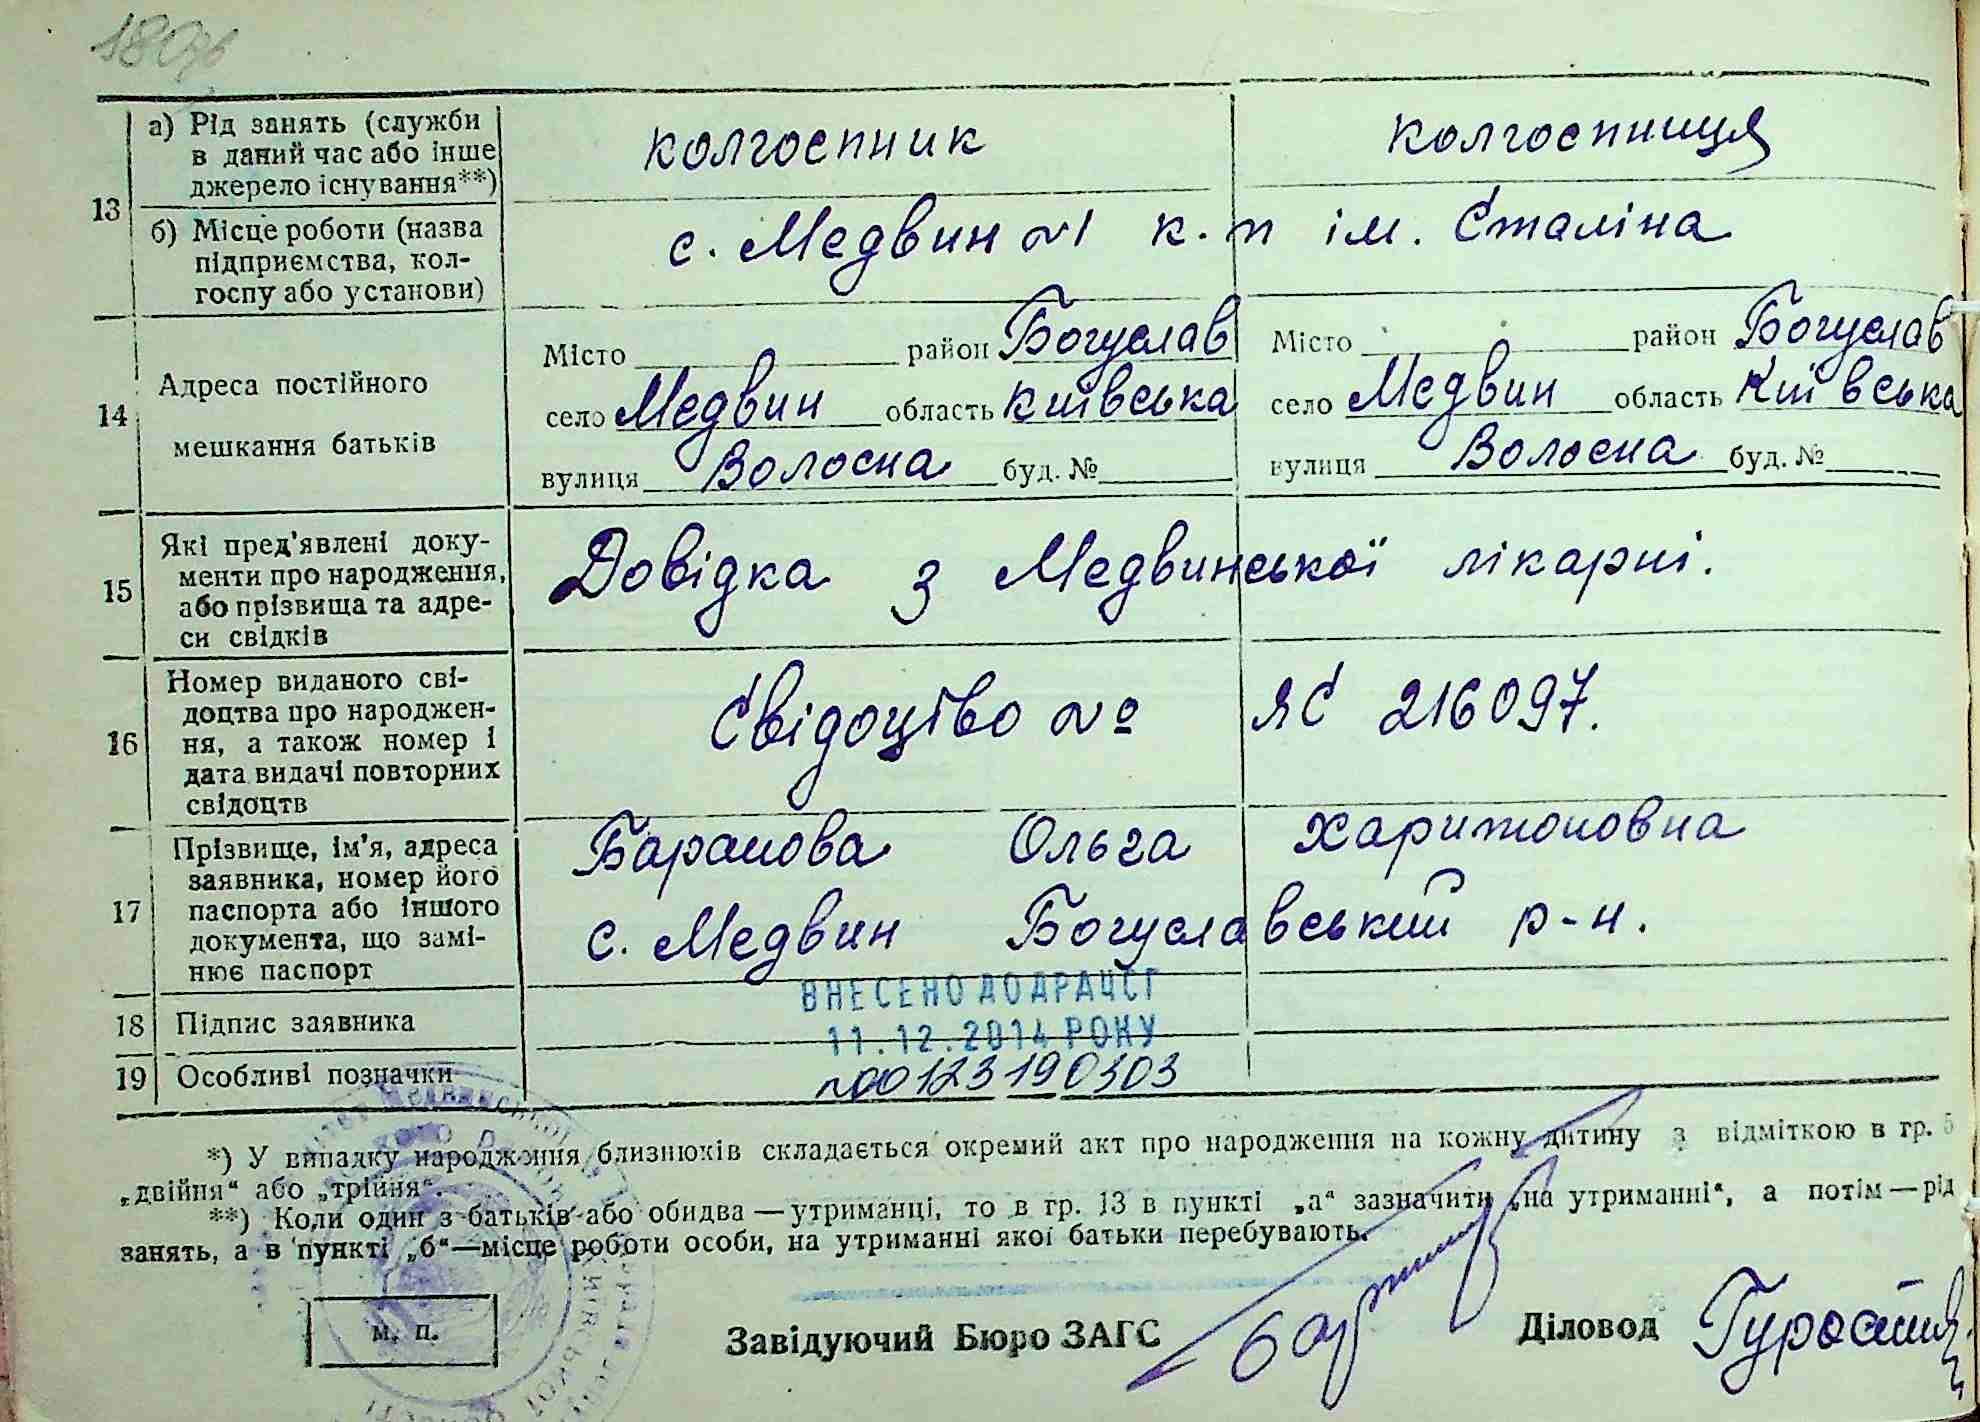 180зв
а) Рід занять (служби
в даний час або інше
джерело існування**)
колгоспник
колгоспниця
13
б) Місце роботи (назва
підприємства, кол-
госпу або установи)
с. Медвин №1 к.т ім. Сталіна
14
Адреса постійного
мешкання батьків
Місто район Богуслав
село Медвин область Київська
вулиця Волосна буд. №
Місто район Богуслав
село Медвин область Київська
вулиця Волосна буд. №
15
Які пред'явлені доку-
менти про народження,
або прізвища та адре-
си свідків
Довідка з Медвинської лікарні.
16
Номер виданого сві-
доцтва про народжен-
ня, а також номер і
дата видачі повторних
свідоцтв
Свідоцтво № ЯС 216097.
17
Прізвище, ім'я, адреса
заявника, номер його
паспорта або іншого
документа, що замі-
нює паспорт
Баранова Ольга Харитоновна
с. Медвин Богуславський р-н.
18 Підпис заявника
ВНЕСЕНО ДО ДРАЦСГ
11.12.2014 РОКУ
19 Особливі позначки
№00123190303
*) У випадку народження близнюків складається окремий акт про народження на кожну дитину з відміткою в гр. 5
„двійня“ або „трійня“.
**) Коли один з батьків або обидва — утриманці, то в гр. 13 в пункті „а“ зазначити „на утриманні“, а потім — рід
занять, а в пункті „б“—місце роботи особи, на утриманні якої батьки перебувають.
м. п.
Завідуючий Бюро ЗАГС
Діловод